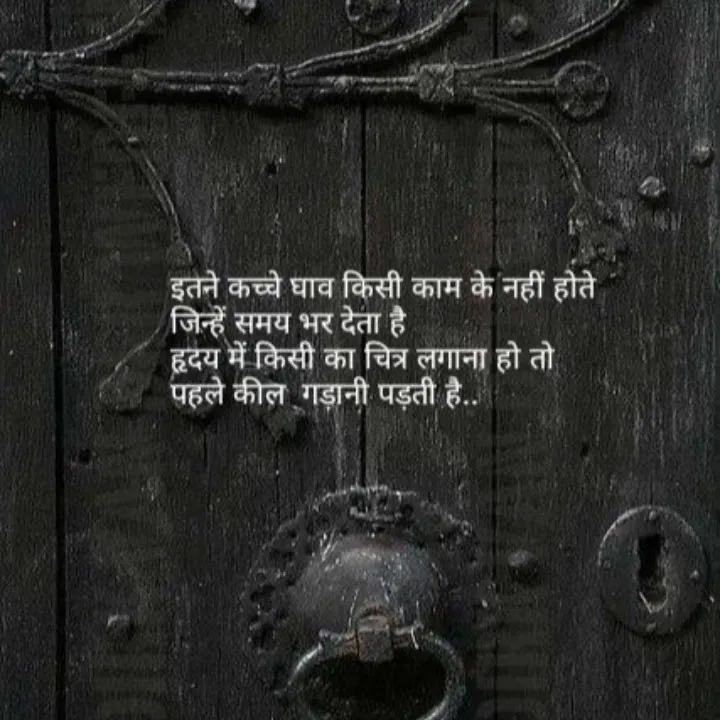 इतने कच्चे घाव किसी काम के नहीं होते
जिन्हें समय भर देता है
हृदय में किसी का चित्र लगाना हो तो
पहले कील गड़ानी पड़ती है..